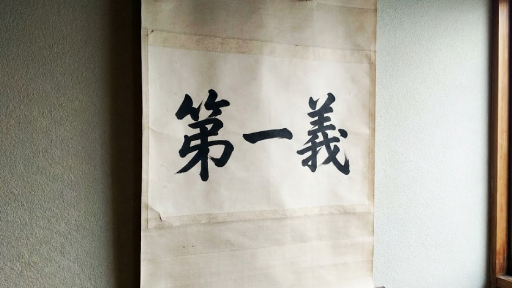 第一義